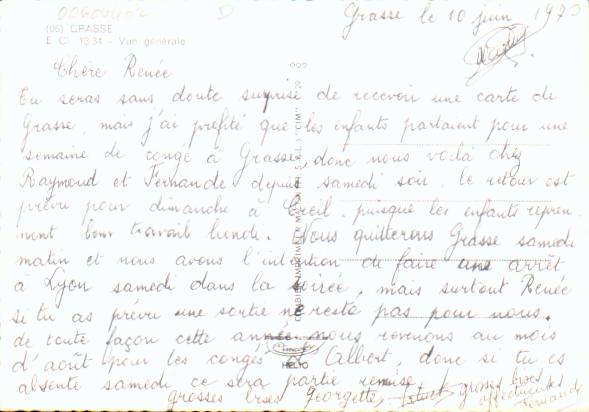 00600602 D
Grasse le 10 juin 1970
(06) GRASSE
E CI 13-34 - Vue générale
Chère Renée
Tu seras sans doute surprise de recevoir une carte de
Grasse, mais j'ai profité que les enfants partaient pour une
semaine de congé à Grasse, donc nous voilà chez
Raymond et Fernande depuis samedi soir, le retour est
prévu pour dimanche à Creil, puisque les enfants repren-
nent leur travail lundi. Nous quitterons Grasse samedi
matin et nous avons l'intention de faire une arrêt
à Lyon samedi dans la soirée, mais surtout Renée
si tu as prévu une sortie ne reste pas pour nous.
de toute façon cette année nous revenons au mois
d'août pour les congés d'Albert, donc si tu es
absente samedi ce sera partie remise.
HELIO
grosses bises Georgette
grosses bises
affectueuses
Fernande